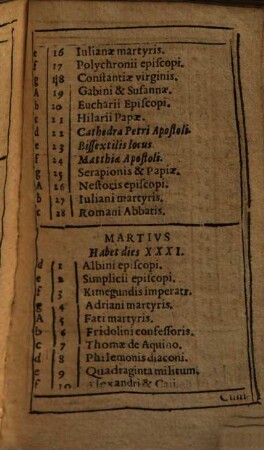 e 16 Iulianæ martyris.
f 17 Polychronii episcopi.
g 18 Constantiæ virginis.
A 19 Gabini & Susannæ.
b 20 Eucharii Episcopi.
c 21 Hilarii Papæ.
d 22 Cathedra Petri Apostoli.
e 23 Bissextilis locus
f 24 Matthiæ Apostoli.
g 25 Serapionis & Papiæ.
A 26 Nestocis episcopi.
b 27 Iuliani martyris,
c 28 Romani Abbatis.
MARTIVS
Habet dies XXXI.
d 1 Albini episcopi.
e 2 Simplicii episcopi.
f 3 Kunegundis imperatr.
g 4 Adriani martyris.
A 5 Fati martyris.
b 6 Fridolini confessoris.
c 7 Thomæ de Aquino.
d 8 Philemonis diaconi.
e 9 Quadraginta militum.
f 10 Alexandri & Caii
Cum